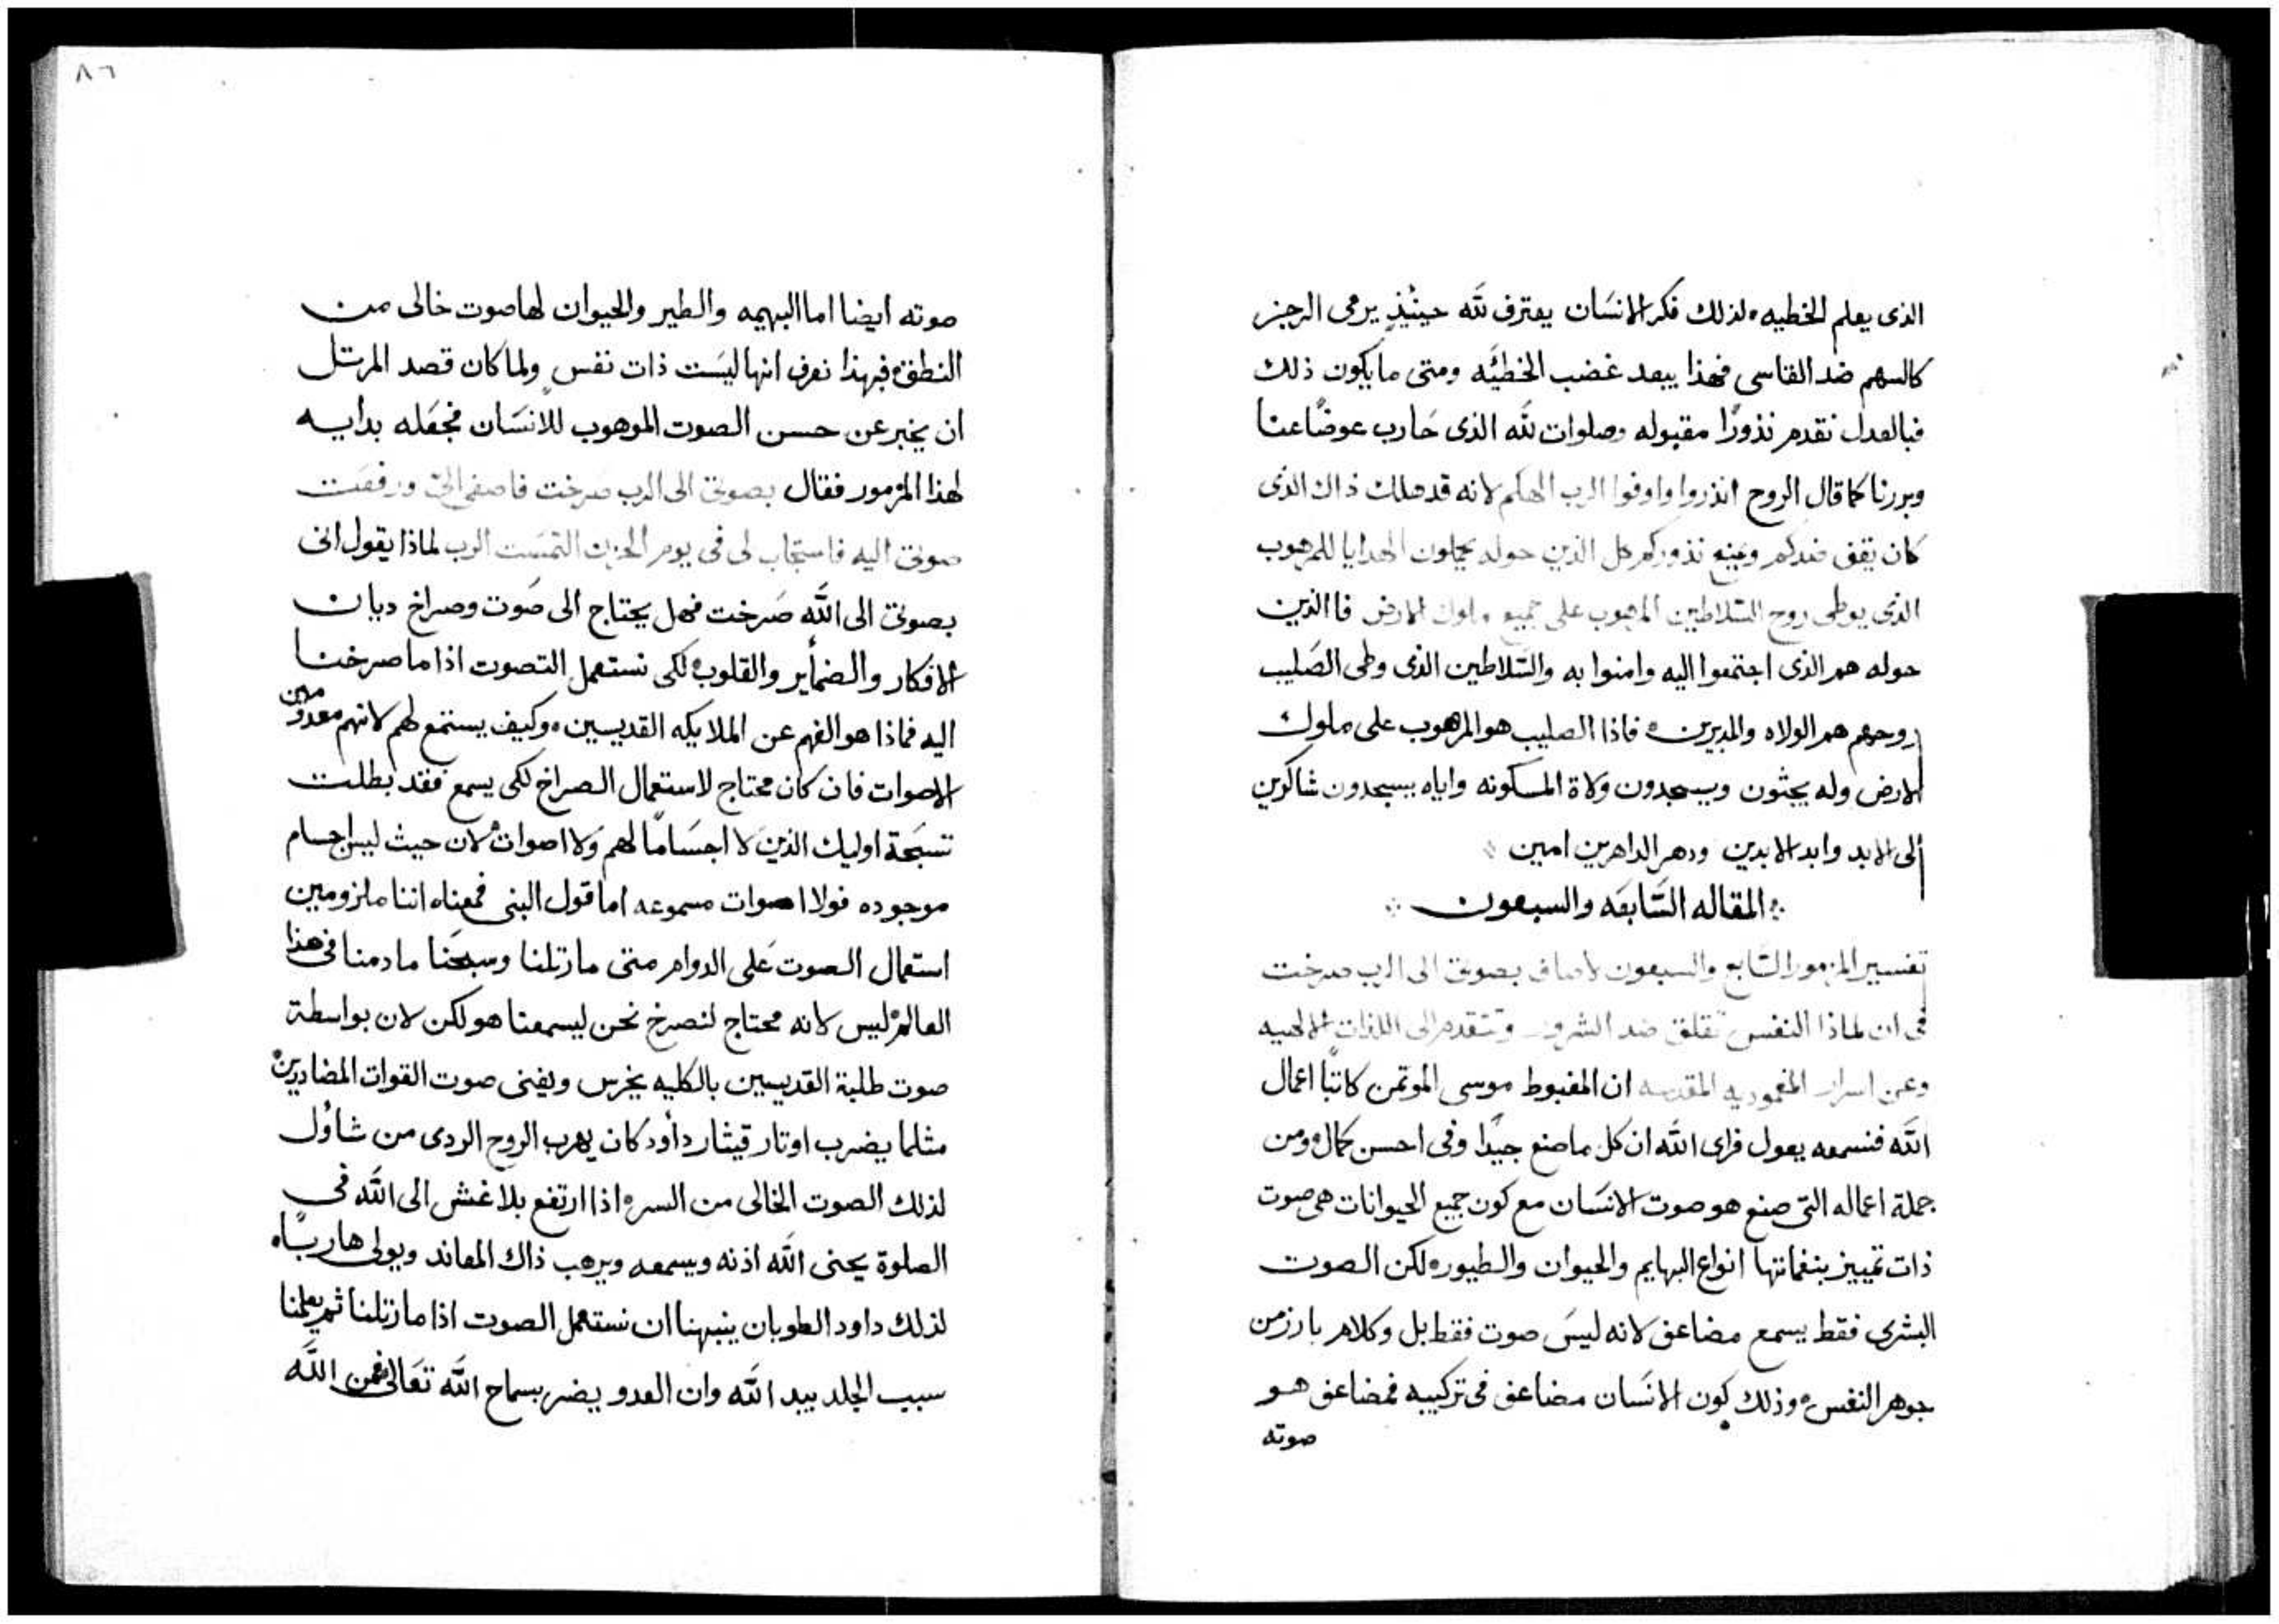 الذى يعلم الخطيه ۰ لذلك فكر الانسَان يعترف لله حينيذٍ يرمى الرجز
كالسهم ضد القاسى فهذا يبعد غضب الخطيَّه ومتى ما يكون ذلك
فبالعدل نقدم نذورًا مقبوله وصلوات لله الذى حَارب عوضًا عنا
وبررنا كما قال الروح انذروا واوفوا الرب الهكم لانه قد هلك ذاك الذى
كان يقف ضدكم ويمنع نذوركم كل الذين حوله يحملون الهدايا للمرهوب
الذى يوطى روح السَّلاطين المرهوب على جميع ملوك الارض فاالذين
حوله هم الذى اجتمعوا اليه وامنوا به والسَّلاطين الذى وطى الصَليب
روحهم هم الولاه والمدبرين ۰ فاذا الصليب هو المرهوب على ملوك
الارض وله يجثون ويسجدون ولاة المسكونه واياه يسجدون شاكرين
إلى الابد وابد الابدين ودهر الداهرين امين
المقاله السَّابعَه والسبعون
تفسير المزمور السَّابع والسبعون لاصاف بصوتى الى الرب صرخت
فى ان لماذا النفس تقلق ضد الشرور وتتقدم الى اللذات الالهيه
وعن اسرار المعموديه المقدسه ان المغبوط موسى الموتمن كاتبًا اعمال
الله فنسمعه يعول فراى الله ان كل ما صنع جيدًا وفى احسن كمال ۰ ومن
جملة اعماله التى صنع هو صوت الانسَان مع كون جميع الحيوانات هى صوت
ذات تمييز بنغماتها انواع البهايم والحيوان والطيور ۰ لكن الصوت
البشرى فقط يسمع مضاعف لانه ليسَ صوت فقط بل وكلام بارز من
جوهر النفس ۰ وذلك كون الانسَان مضاعف فى تركيبه فمضاعف هو
صوته
٨٦
صوته ايضا اما البهيمه والطير والحيوان لها صوت خالى من
النطق ۰ فبهذا نعرف انها ليسَت ذات نفس ولما كان قصد المرتل
ان يخبر عن حسن الصوت الموهوب للانسَان فجعَله بدايه
لهذا المزمور فقال بصوتى الى الرب صرخت فاصغى الىّ ورفعَت
صوتى اليه فاستجاب لى فى يوم الحزن التمسَت الرب لماذا يقول انى
بصوتى الى الله صَرخت فهل يحتاج الى صَوت وصراخ ديان
الافكار والضمأير والقلوب ۰ لكى نستعمل التصوت اذا ما صرخنا
اليه فماذا هو الفهم عن الملايكه القديسين ۰ وكيف يستمع لهم لانهم معدومين
الاصوات فان كان محتاج لاستعمال الصراخ لكى يسمع فقد بطلت
تسبَحة اوليك الذين لا اجسَامًا لهم وَلا اصوات ۰ لان حيث ليس اجسام
موجوده فولا اصوات مسموعه اما قول النبى فمعناه اننا ملزومين
استعمال الصوت عَلى الدوام متى ما رتلنا وسبحَنا ما دمنا فى هذا
العالم ۰ ليس لانه محتاج لنصرخ نحن ليسمعنا هو لكن لان بواسطة
صوت طلبة القديسين بالكليه يخرس ويفنى صوت القوات المضاددين
مثلما يضرب اوتار قيثار دأود كان يهرب الروح الردى من شاوُل
لذلك الصوت الخالى من السر ۰ اذا ارتفع بلا غش الى الله فى
الصلوة يحنى الله اذنه ويسمعه ويرهب ذاك المعاند ويولى هاربًا ۰
لذلك داود الطوبان ينبهنا ان نستعمل الصوت اذا ما رتلنا ثم يعلمنا
سبب الجلد بيد الله وان العدو يضر بسماح الله تعَالى فمن الله